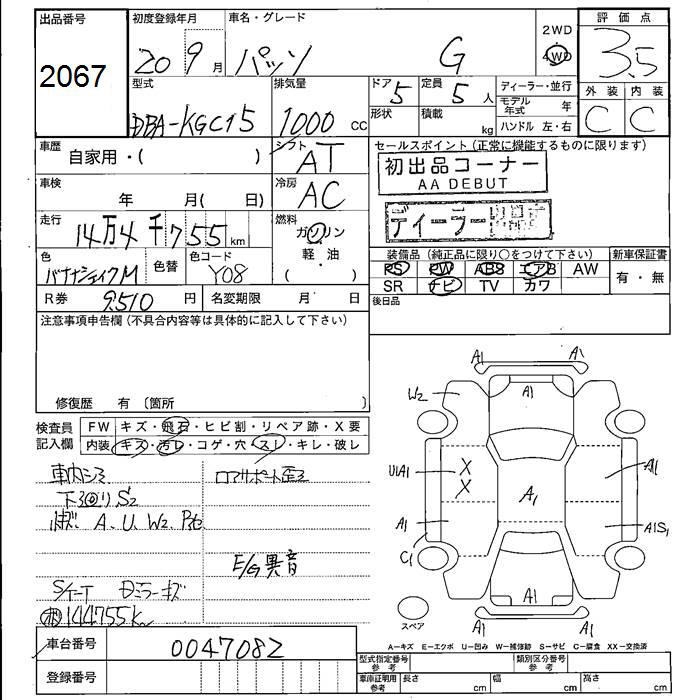 出品番号 初度登録年月 車名・グレード 2WD 評価点
2067 20 9月 パッソ G 4WD 3.5
型式 排気量 ドア 定員 ディーラー・並行 外装 内装
DBA-KGC15 1000 cc 5 5 人 モデル年式 年 C C
形状 積載 kg ハンドル 左・右
車歴 シフト セールスポイント(正常に機能するものに限ります)
自家用・( ) AT 初出品コーナー
AA DEBUT
車検 冷房
年 月( 日) AC
ディーラー
走行 燃料
14万4千755km ガソリン
軽・油
( )
色 色替 色コード 装備品(純正品に限り○をつけて下さい) 新車保証書
バナナシェイクM Y08 PS PW ABS エアB AW 有・無
SR ナビ TV カワ
R券 9,510 円 名変期限 月 日 後日品
注意事項申告欄(不具合内容等は具体的に記入して下さい)
修復歴 有 〔箇所 〕
検査員記入欄 FW キズ・飛石・ヒビ割・リペア跡・X要
内装 キズ・汚レ・コゲ・穴・スレ・キレ・破レ
車内シミ ロアサポート歪
下廻りS2
小キズ A、U、W2
E/G異音
Sケート Dミラーキズ
144755km
車台番号 0047082
登録番号
A1 A1
W2 A1
U1A1 X A1
X
A1 A1 A1S1
C1
A1
A1 A1
スペア
A-キズ E-エクボ U-凹み W-補修跡 S-サビ C-腐食 XX-交換済
型式指定番号 参考 類別区分番号 参考
車庫証明用 参考 長さ cm 幅 cm 高さ cm